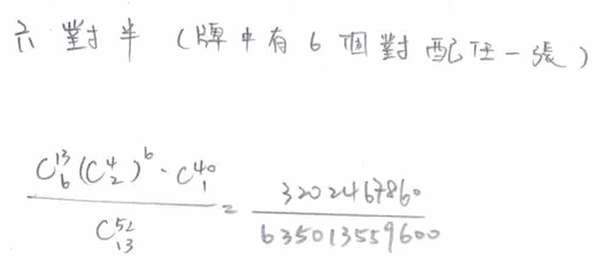 六對半 (牌中有6個對配任一張)
C^{13}_{6}(C^{4}_{2})^{6}·C^{40}_{1} / C^{52}_{13} = 3202467860 / 635013559600